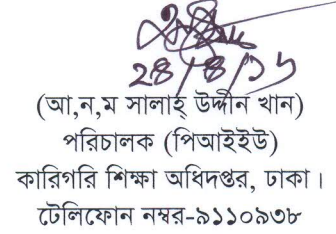 ২৪/৪/১৬
(আ,ন,ম সালাহ্ উদ্দীন খান)
পরিচালক (পিআইইউ)
কারিগরি শিক্ষা অধিদপ্তর, ঢাকা।
টেলিফোন নম্বর-৯১১০৯৩৮